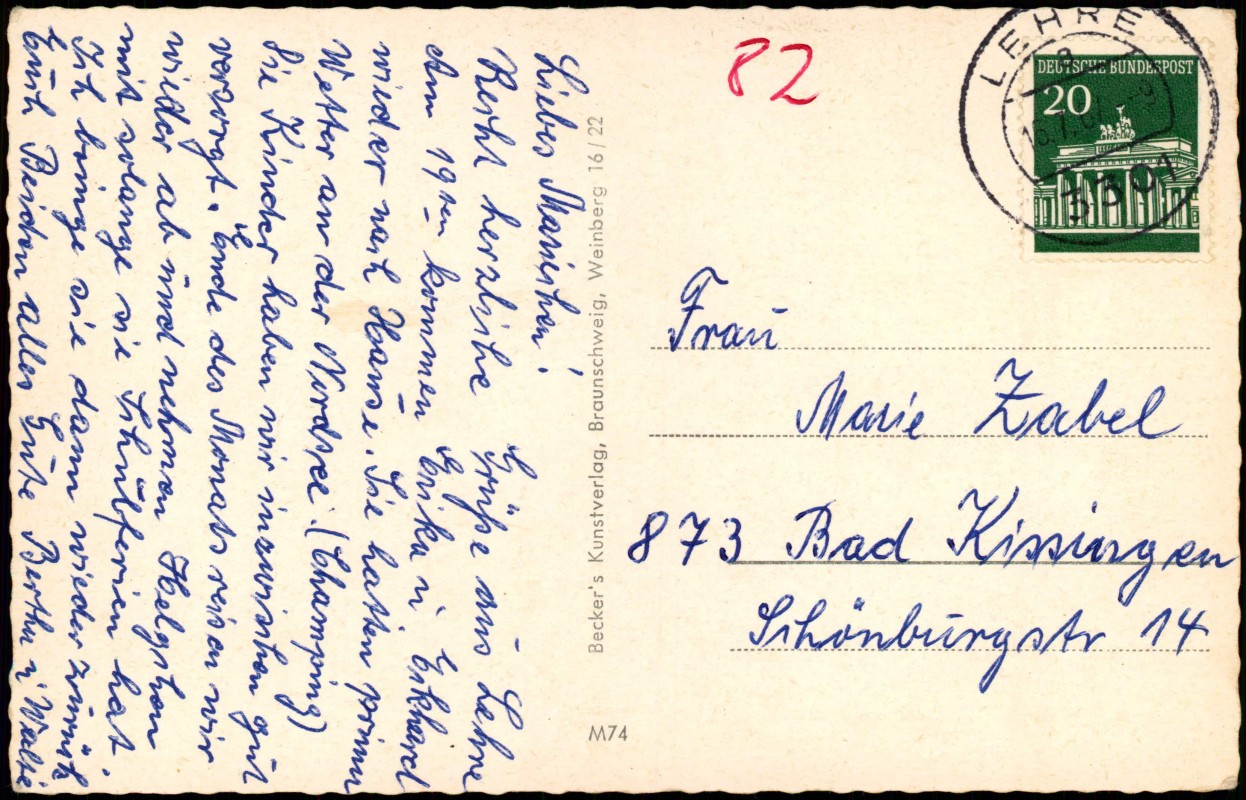 Liebes Mariechen!
Recht herzliche Grüße aus Lehre
Am 19ten kommen Erika u Eckhard
wieder nach Hause. Sie hatten prima
Wetter an der Nordsee. (Champing)
Die Kinder haben wir inzwischen gut
versorgt. Ende des Monats reisen wir
wieder ab und nehmen Helgchen
mit solange sie Schulferien hat.
Ich bringe sie dann wieder zurück
Euch Beiden alles Gute Bertha u Walter
Becker's Kunstverlag, Braunschweig, Weinberg 16/22
M74
82
LEHRE
a
3301
DEUTSCHE BUNDESPOST
20
Frau
Marie Zabel
873 Bad Kissingen
Schönburgstr 14